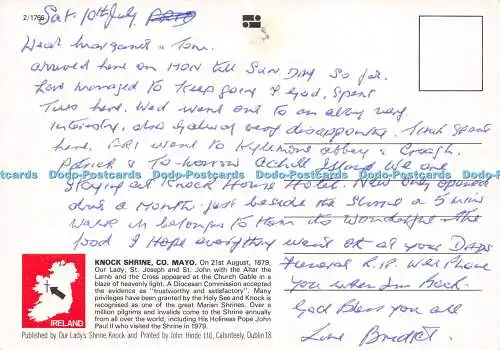 2/1766
Sat. 10th July
Dear Margaret & Tom.
arrived here on MON till SUN DAY so far.
have managed to keep going T. God. Spent
Tues here. Wed went out to
Intersting, also Galway very disappointing. Thur spent
here. FRI went to Kylemore Abbey & Croagh
Patrick & To-morrow Achill Island We are
staying at Knock House Hotel. New only opened
a Month. just beside the Shrine a 5 min
walk it belongs to them its Wonderful & the
food I Hope everything went OK at your DADS
Funeral R.I.P. Will Phone
you when Im back.
God Bless you all
Love Bridget.
KNOCK SHRINE, CO. MAYO. On 21st August, 1879,
Our Lady, St. Joseph and St. John with the Altar the
Lamb and the Cross appeared at the Church Gable in a
blaze of heavenly light. A Diocesan Commission accepted
the evidence as "trustworthy and satisfactory". Many
privileges have been granted by the Holy See and Knock is
recognised as one of the great Marian Shrines. Over a
million pilgrims and invalids come to the Shrine annually
from all over the world, including His Holiness Pope John
Paul II who visited the Shrine in 1979.
IRELAND
Published by Our Lady's Shrine, Knock and Printed by John Hinde Ltd., Cabinteely, Dublin 18.
Dodo-Postcards Dodo-Postcards Dodo-Postcards Dodo-Postcards